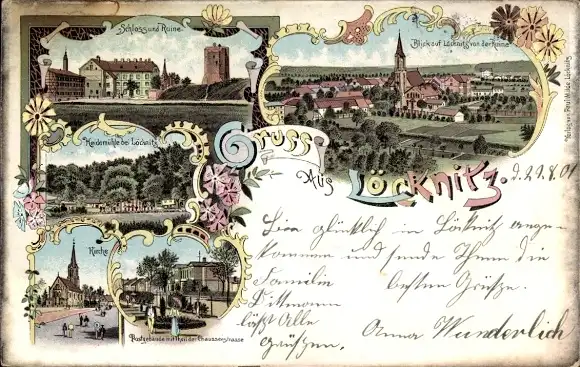 Schloss und Ruine
Blick auf Löcknitz von der Ruine
Heidemühle bei Löcknitz
Gruss
Aus
Löcknitz.
Kirche
Postgebäude mit Theil der Chausseestrasse
d. 29.8.01
Bin glücklich in Löcknitz ange-
kommen und sende Ihnen die
besten Grüße.
Familie
Dittmann
läßt Alle
grüßen.
Anna Wunderlich